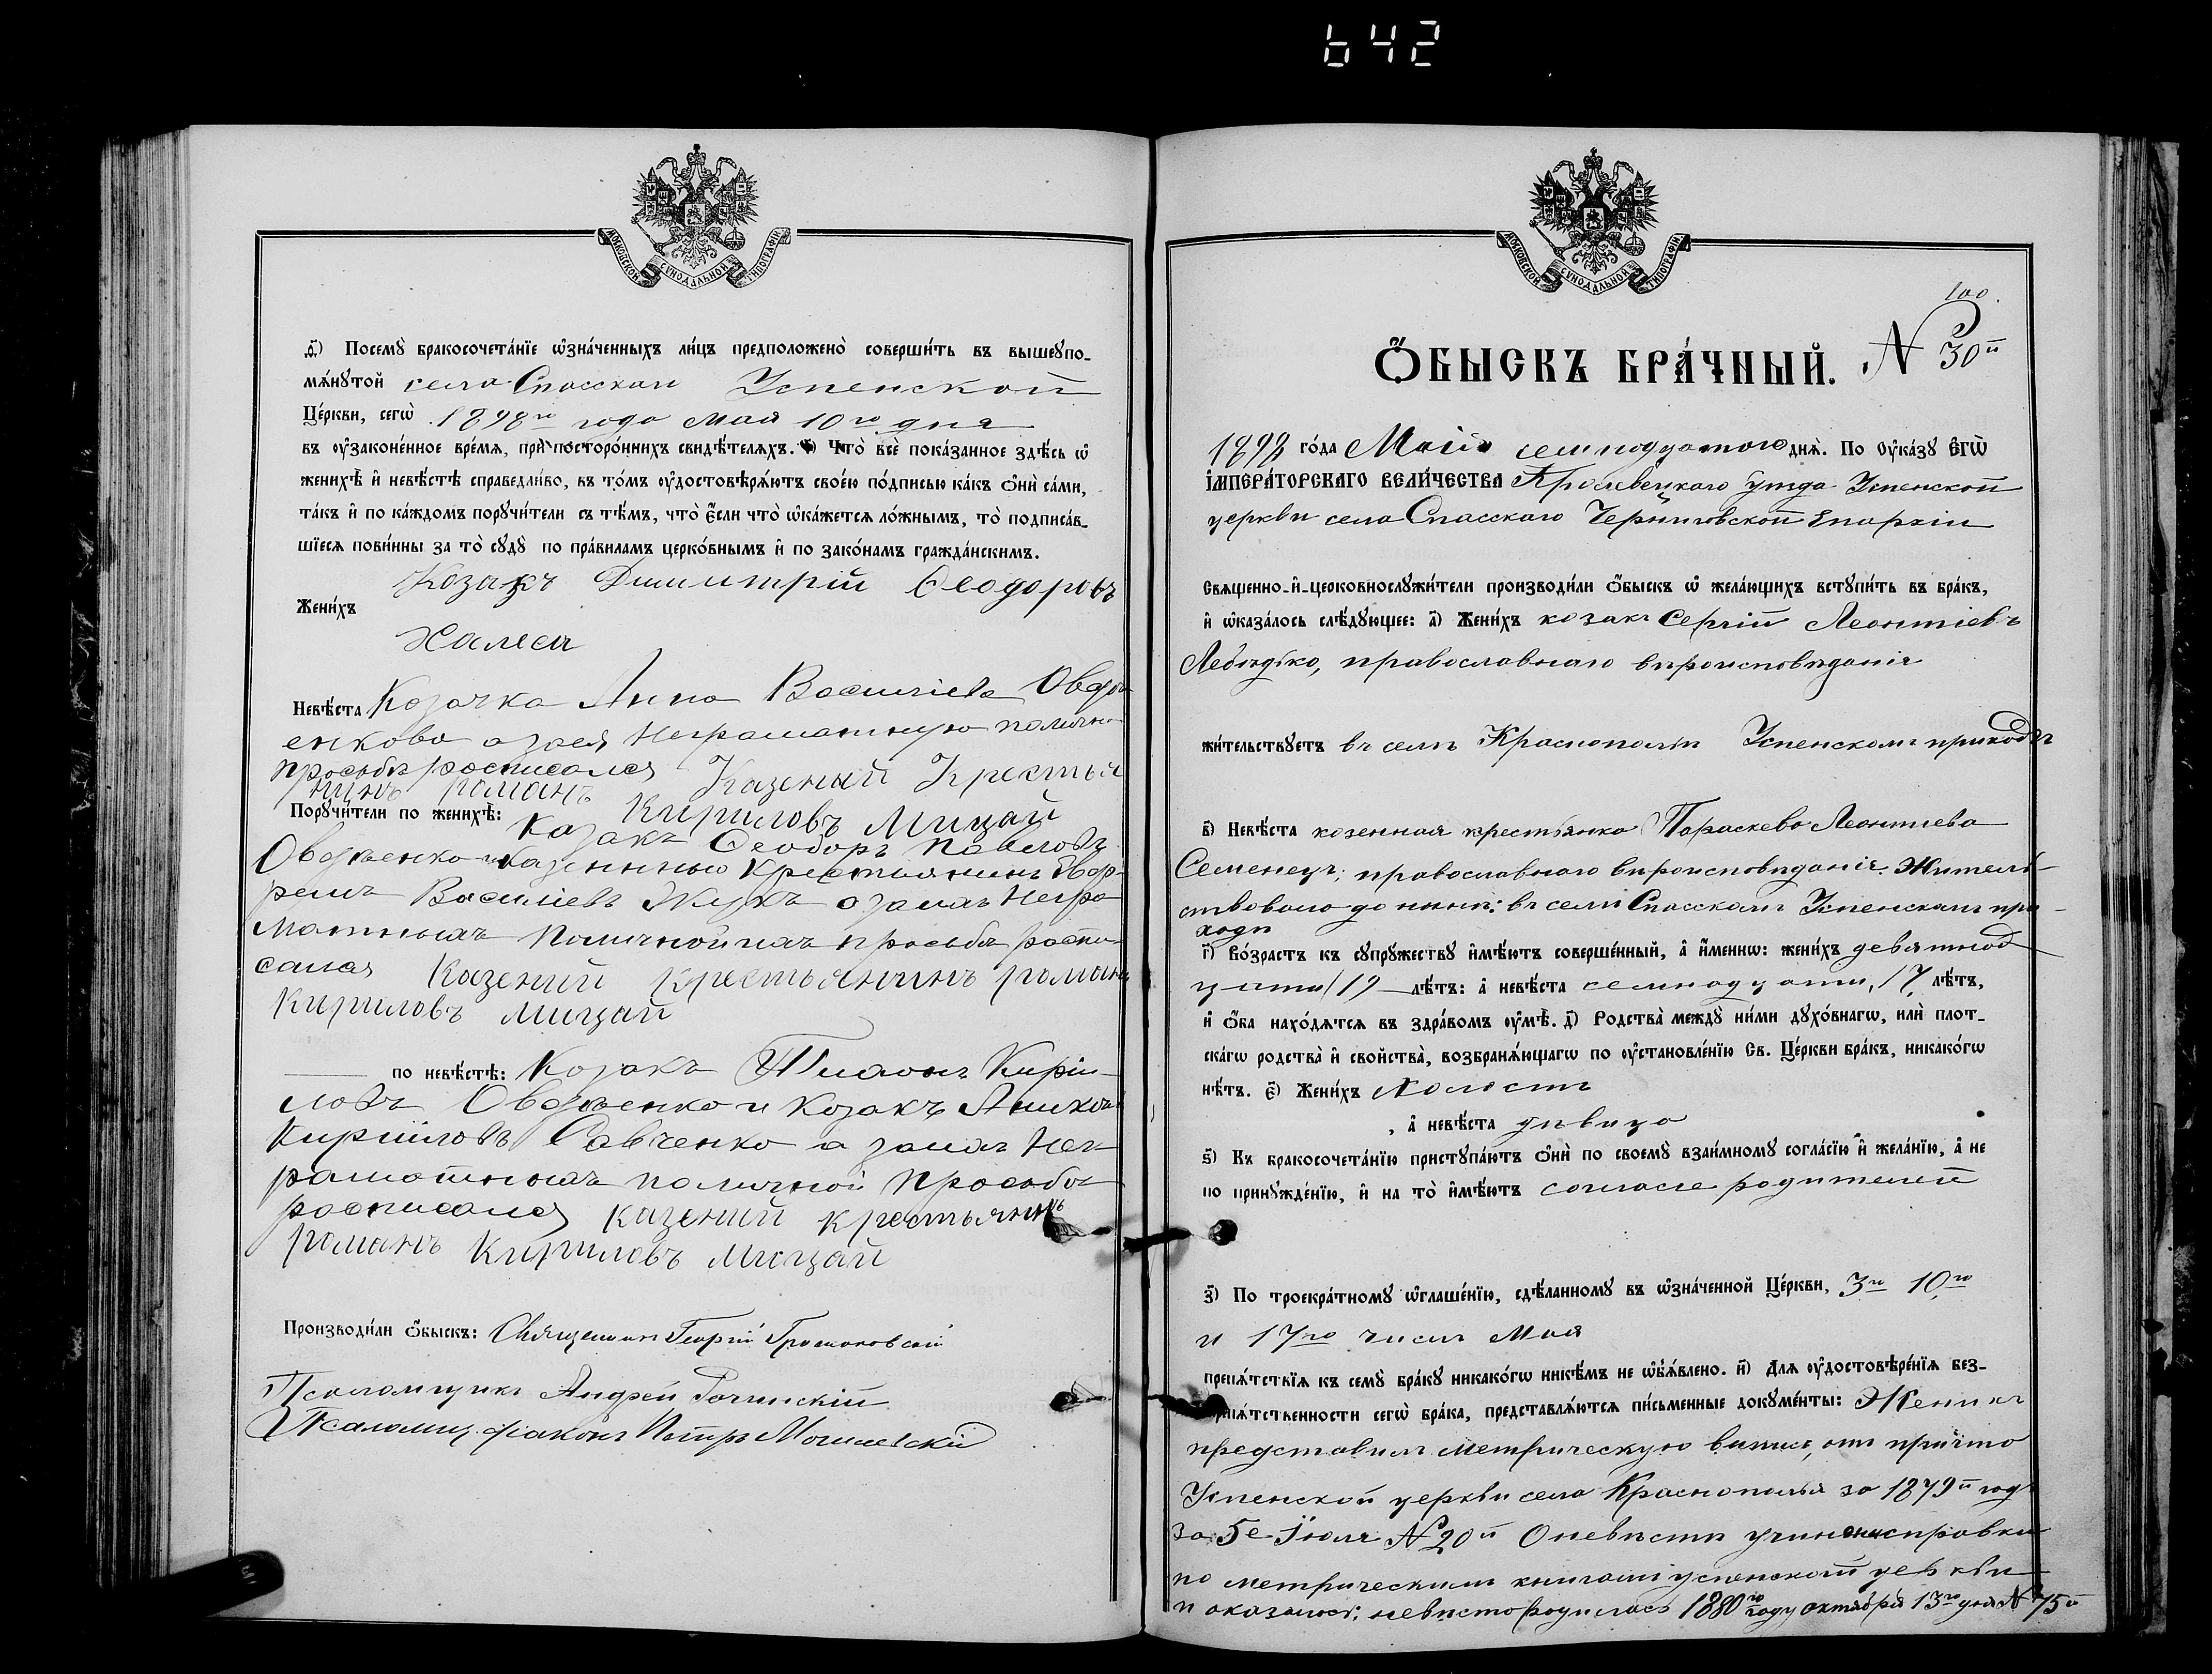 642
МОСКОВСКОЙ СѴНОДАЛЬНОЙ ТИПОГРАФІИ
д҃) Посемꙋ̀ бракосочета́нїе ѡ҆зна́ченныхъ ли́цъ предположено̀ соверши́ть въ вышеꙋпо-
мѧ́нꙋтой села Спасскаго Успенской
Це́ркви, сегѡ̀ 1898го года Мая 10го дня
въ ᲂу҆законе́нное вре́мѧ, прѝ посторо́ннихъ свидѣ́телѧхъ. Что̀ всѐ пока́занное здѣ́сь ѡ҆
женихѣ̀ и҆ невѣ́стѣ справедли́во, въ то́мъ ᲂу҆достовѣрѧ́ютъ свое́ю по́дписью ка́къ ѻ҆нѝ са́ми,
та́къ и҆ по ка́ждомъ порꙋчи́тели съ тѣ́мъ, что̀ є҆́сли что̀ ѡ҆ка́жетсѧ ло́жнымъ, то̀ подписа́в-
шїесѧ пови́нны за то̀ сꙋдꙋ̀ по пра́виламъ церко́внымъ и҆ по зако́намъ гражда́нскимъ.
Козакъ Димитрій Ѳеодоровъ
Жени́хъ
Невѣ́ста Козачка Анна Васильева
енкова а за неграматную по
просьбѣ росписался Казеный Крестья
нинъ романъ
Порꙋчи́тели по женихѣ̀: Кириловъ Мицай
Казакъ Ѳеодоръ Павловъ
Овдѣенко и Казенный Крестьянинъ
Василіевъ Жукъ а за нихъ Негра
мотныхъ по личной ихъ просьбѣ роспи
сался Казеный крестьянинъ романъ
Кириловъ Мицай
по невѣ́стѣ: Козакъ Кирил
ловъ Овдѣенко и Козакъ
Кириловъ Савченко а за нихъ Нег
рамотныхъ по личной просьбѣ
росписался казеный крестьянинъ
романъ Кириловъ Мицай
Производи́ли ѻ҆́быскъ: Священникъ Георгій Громаковскій
Псаломщикъ Андрей
Псаломщ. діаконъ Петръ Могилевскій
МОСКОВСКОЙ СѴНОДАЛЬНОЙ ТИПОГРАФІИ
100.
Ѻ҆́БЫСКЪ БРА́ЧНЫЙ. № 30й
1898 го́да Маія семнадцатого днѧ̀. По ᲂу҆ка́зꙋ Є҆ГѠ̀
І҆МПЕРА́ТОРСКАГО ВЕЛИ́ЧЕСТВА Кролевецкаго уѣзда Успенской
церкви села Спасскаго Черниговской Епархіи
Свѧщенно-и҆-церковнослꙋжи́тели производи́ли ѻ҆́быскъ ѡ҆ жела́ющихъ встꙋпи́ть въ бра́къ,
и҆ ѡ҆каза́лось слѣ́дꙋющее: а҃) Жени́хъ козакъ Сергій Леонтіевъ
Лебѣдько, православнаго вѣроисповѣданія
жи́тельствꙋетъ въ селѣ Краснополіи Успенскомъ приходѣ
в҃) Невѣ́ста козенная крестьянка Параскева Леонтіева
Семенецъ; православнаго вѣроисповѣданія. Житель-
ствовала до нынѣ: въ селѣ Спасскомъ Успенскомъ при-
ходѣ
г҃) Во́зрастъ къ сꙋпрꙋ́жествꙋ и҆мѣ́ютъ соверше́нный, а҆ и҆́меннѡ: жени́хъ девятнад
цати/19 лѣ́тъ: а҆ невѣ́ста семнадцати, 17 лѣ́тъ,
и҆ ѻ҆́ба нахо́дѧтсѧ въ здра́вомъ ᲂу҆мѣ̀. д҃) Родства̀ междꙋ̀ ни́ми дꙋхо́внагѡ, и҆лѝ плот-
ска́гѡ родства̀ и҆ сво́йства̀, возбранѧ́ющагѡ по ᲂу҆становле́нїю Св. Це́ркви бра́къ, никако́гѡ
нѣ́тъ. є҃) Жени́хъ холостъ
, а҆ невѣ́ста дѣвица
ѕ҃) Къ бракосочета́нїю пристꙋпа́ютъ ѻ҆нѝ по своемꙋ̀ взаи́мномꙋ согла́сїю и҆ жела́нїю, а҆ не
по принꙋжде́нїю, и҆ на то̀ и҆мѣ́ютъ согласіе родителей
з҃) По троекра́тномꙋ ѡ҆глаше́нїю, сдѣ́ланномꙋ въ ѡ҆зна́ченной Це́ркви, 3го 10го
и 17го числъ Мая
препѧ́тствїѧ къ семꙋ̀ бра́кꙋ никако́гѡ никѣ́мъ не ѡ҆б̾ѧ́влено. и҃) Длѧ ᲂу҆достовѣре́нїѧ без-
препѧ́тственности сегѡ̀ бра́ка, представлѧ́ютсѧ пи́сьменные докꙋме́нты: Женихъ
представилъ метрическую выпись, отъ причта
Успенской церкви села Краснополья за 1879й годъ
за 5е Іюля № 20й О невѣсти учинена справка
по метрическимъ книгамъ успенской церкви
и оказалось: невѣста родилась 1880го году октября 13го дня № 75й